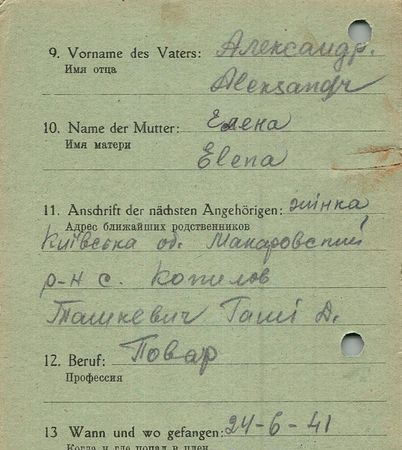 9. Vorname des Vaters: Александр.
Имя отца
Aleksandr
10. Name der Mutter: Елена
Имя матери
Elena
11. Anschrift der nächsten Angehörigen: жінка
Адрес ближайших родственников
Київська об. Макаровский
р-н с. Копилов
Ташкевич Гаші Д.
12. Beruf: Повар
Профессия
13 Wann und wo gefangen: 24-6-41
Когда и где попал в плен